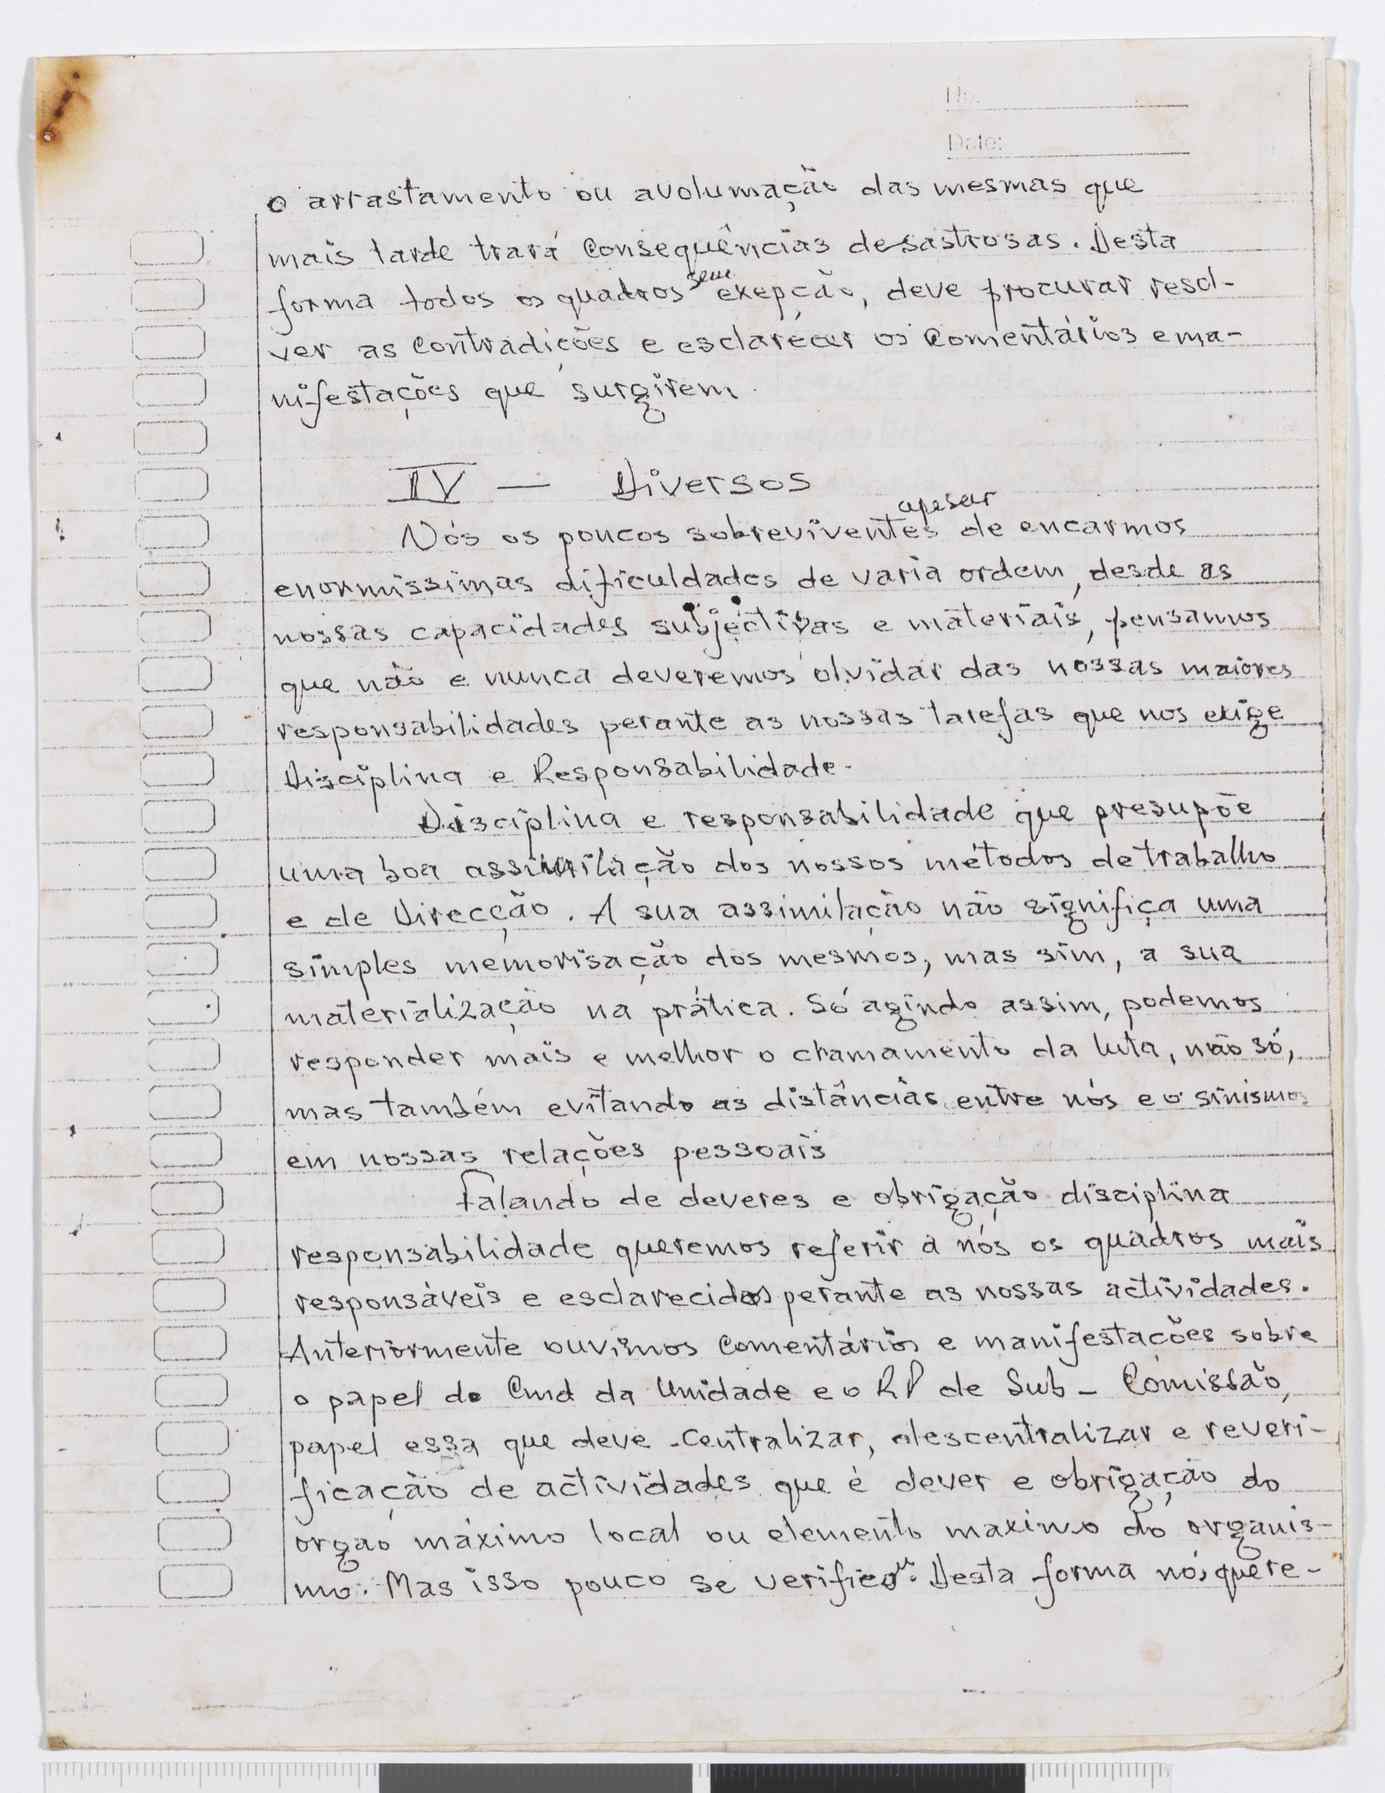 No.
Date:
o arrastamento ou avolumação das mesmas que
mais tarde trará consequências desastrosas. Desta
forma todos os quadros sem exepção, deve procurar resol-
ver as contradições e esclarecer os comentários e ma-
nifestações que surgirem.
IV — Diversos
Nós os poucos sobreviventes apesar de encarmos
enormissimas dificuldades de varia ordem, desde as
nossas capacidades subjectivas e materiais, pensamos
que não e nunca deveremos olvidar das nossas maiores
responsabilidades perante as nossas tarefas que nos exige
Disciplina e Responsabilidade.
Disciplina e responsabilidade que presupõe
uma boa assimilação dos nossos métodos de trabalho
e de Direcção. A sua assimilação não significa uma
simples memorisação dos mesmos, mas sim, a sua
materialização na prática. Só agindo assim, podemos
responder mais e melhor o chamamento da luta, não só,
mas também evitando as distâncias entre nós e o sinismo
em nossas relações pessoais
Falando de deveres e obrigação disciplina
responsabilidade queremos referir a nós os quadros mais
responsáveis e esclarecidos perante as nossas actividades.
Anteriormente ouvimos comentários e manifestações sobre
o papel do Cmd da Unidade e o RP de Sub-Comissão,
papel essa que deve centralizar, descentralizar e reveri-
ficação de actividades que é dever e obrigação do
orgaõ máximo local ou elemento maximo do organis-
mo. Mas isso pouco se verificou. Desta forma nós, quere-